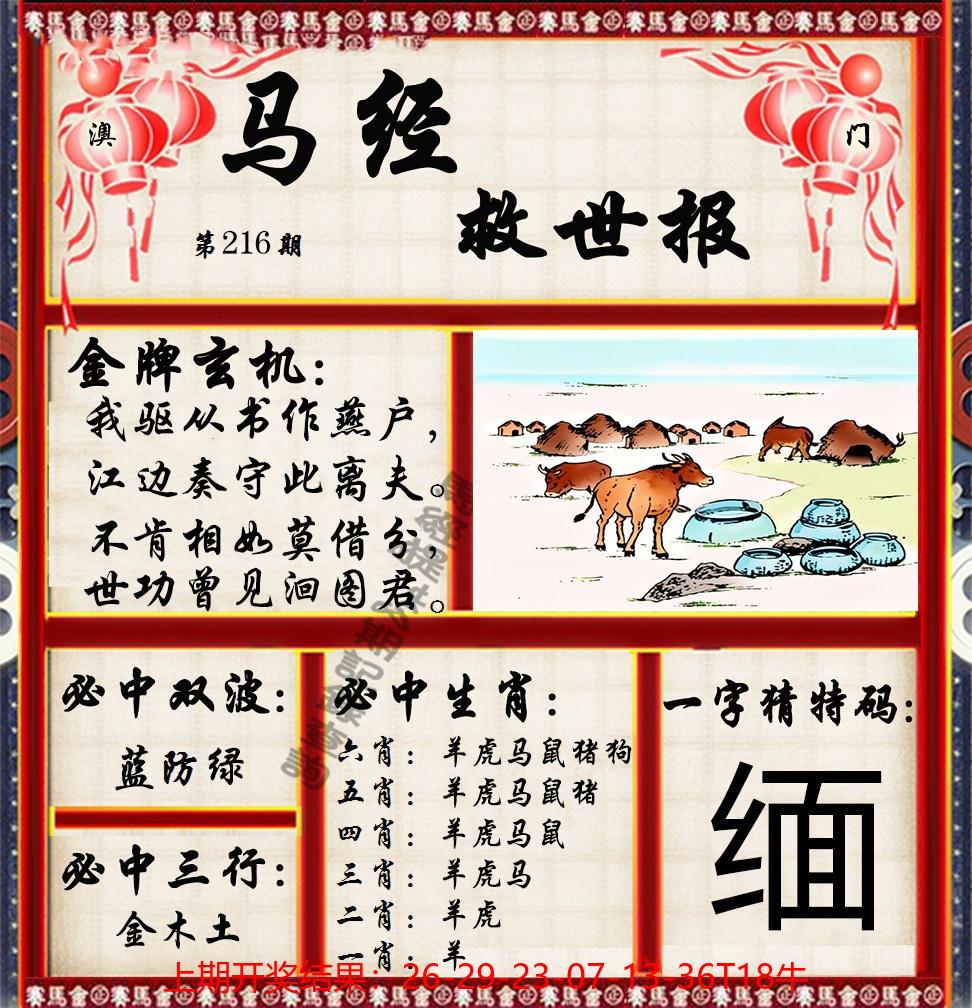 马经
澳
门
救世报
第216期
金牌玄机：
我驱从书作燕户，
江边奏守此离夫。
不肯相如莫借分，
世功曾见洄图君。
必中双波：
蓝防绿
必中三行：
金木土
必中生肖：
六肖：羊虎马鼠猪狗
五肖：羊虎马鼠猪
四肖：羊虎马鼠
三肖：羊虎马
二肖：羊虎
一肖：羊
一字猜特码：
缅
上期开奖结果：26-29-23-07-13-36T18牛